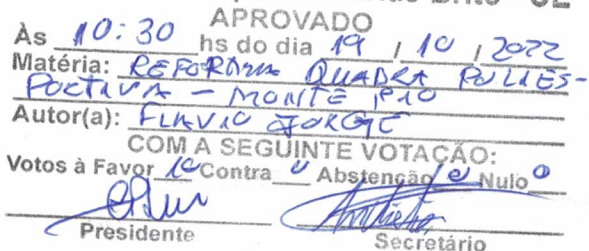 Brito - CE
APROVADO
Às 10:30 hs do dia 19 / 10 / 2022
Matéria: REFORMA QUADRA POLIES-
PORTIVA - MONTE PIO
Autor(a): FLAVIO JORGE
COM A SEGUINTE VOTAÇÃO:
Votos à Favor 10 Contra 0 Abstenção 0 Nulo 0
Presidente Secretário